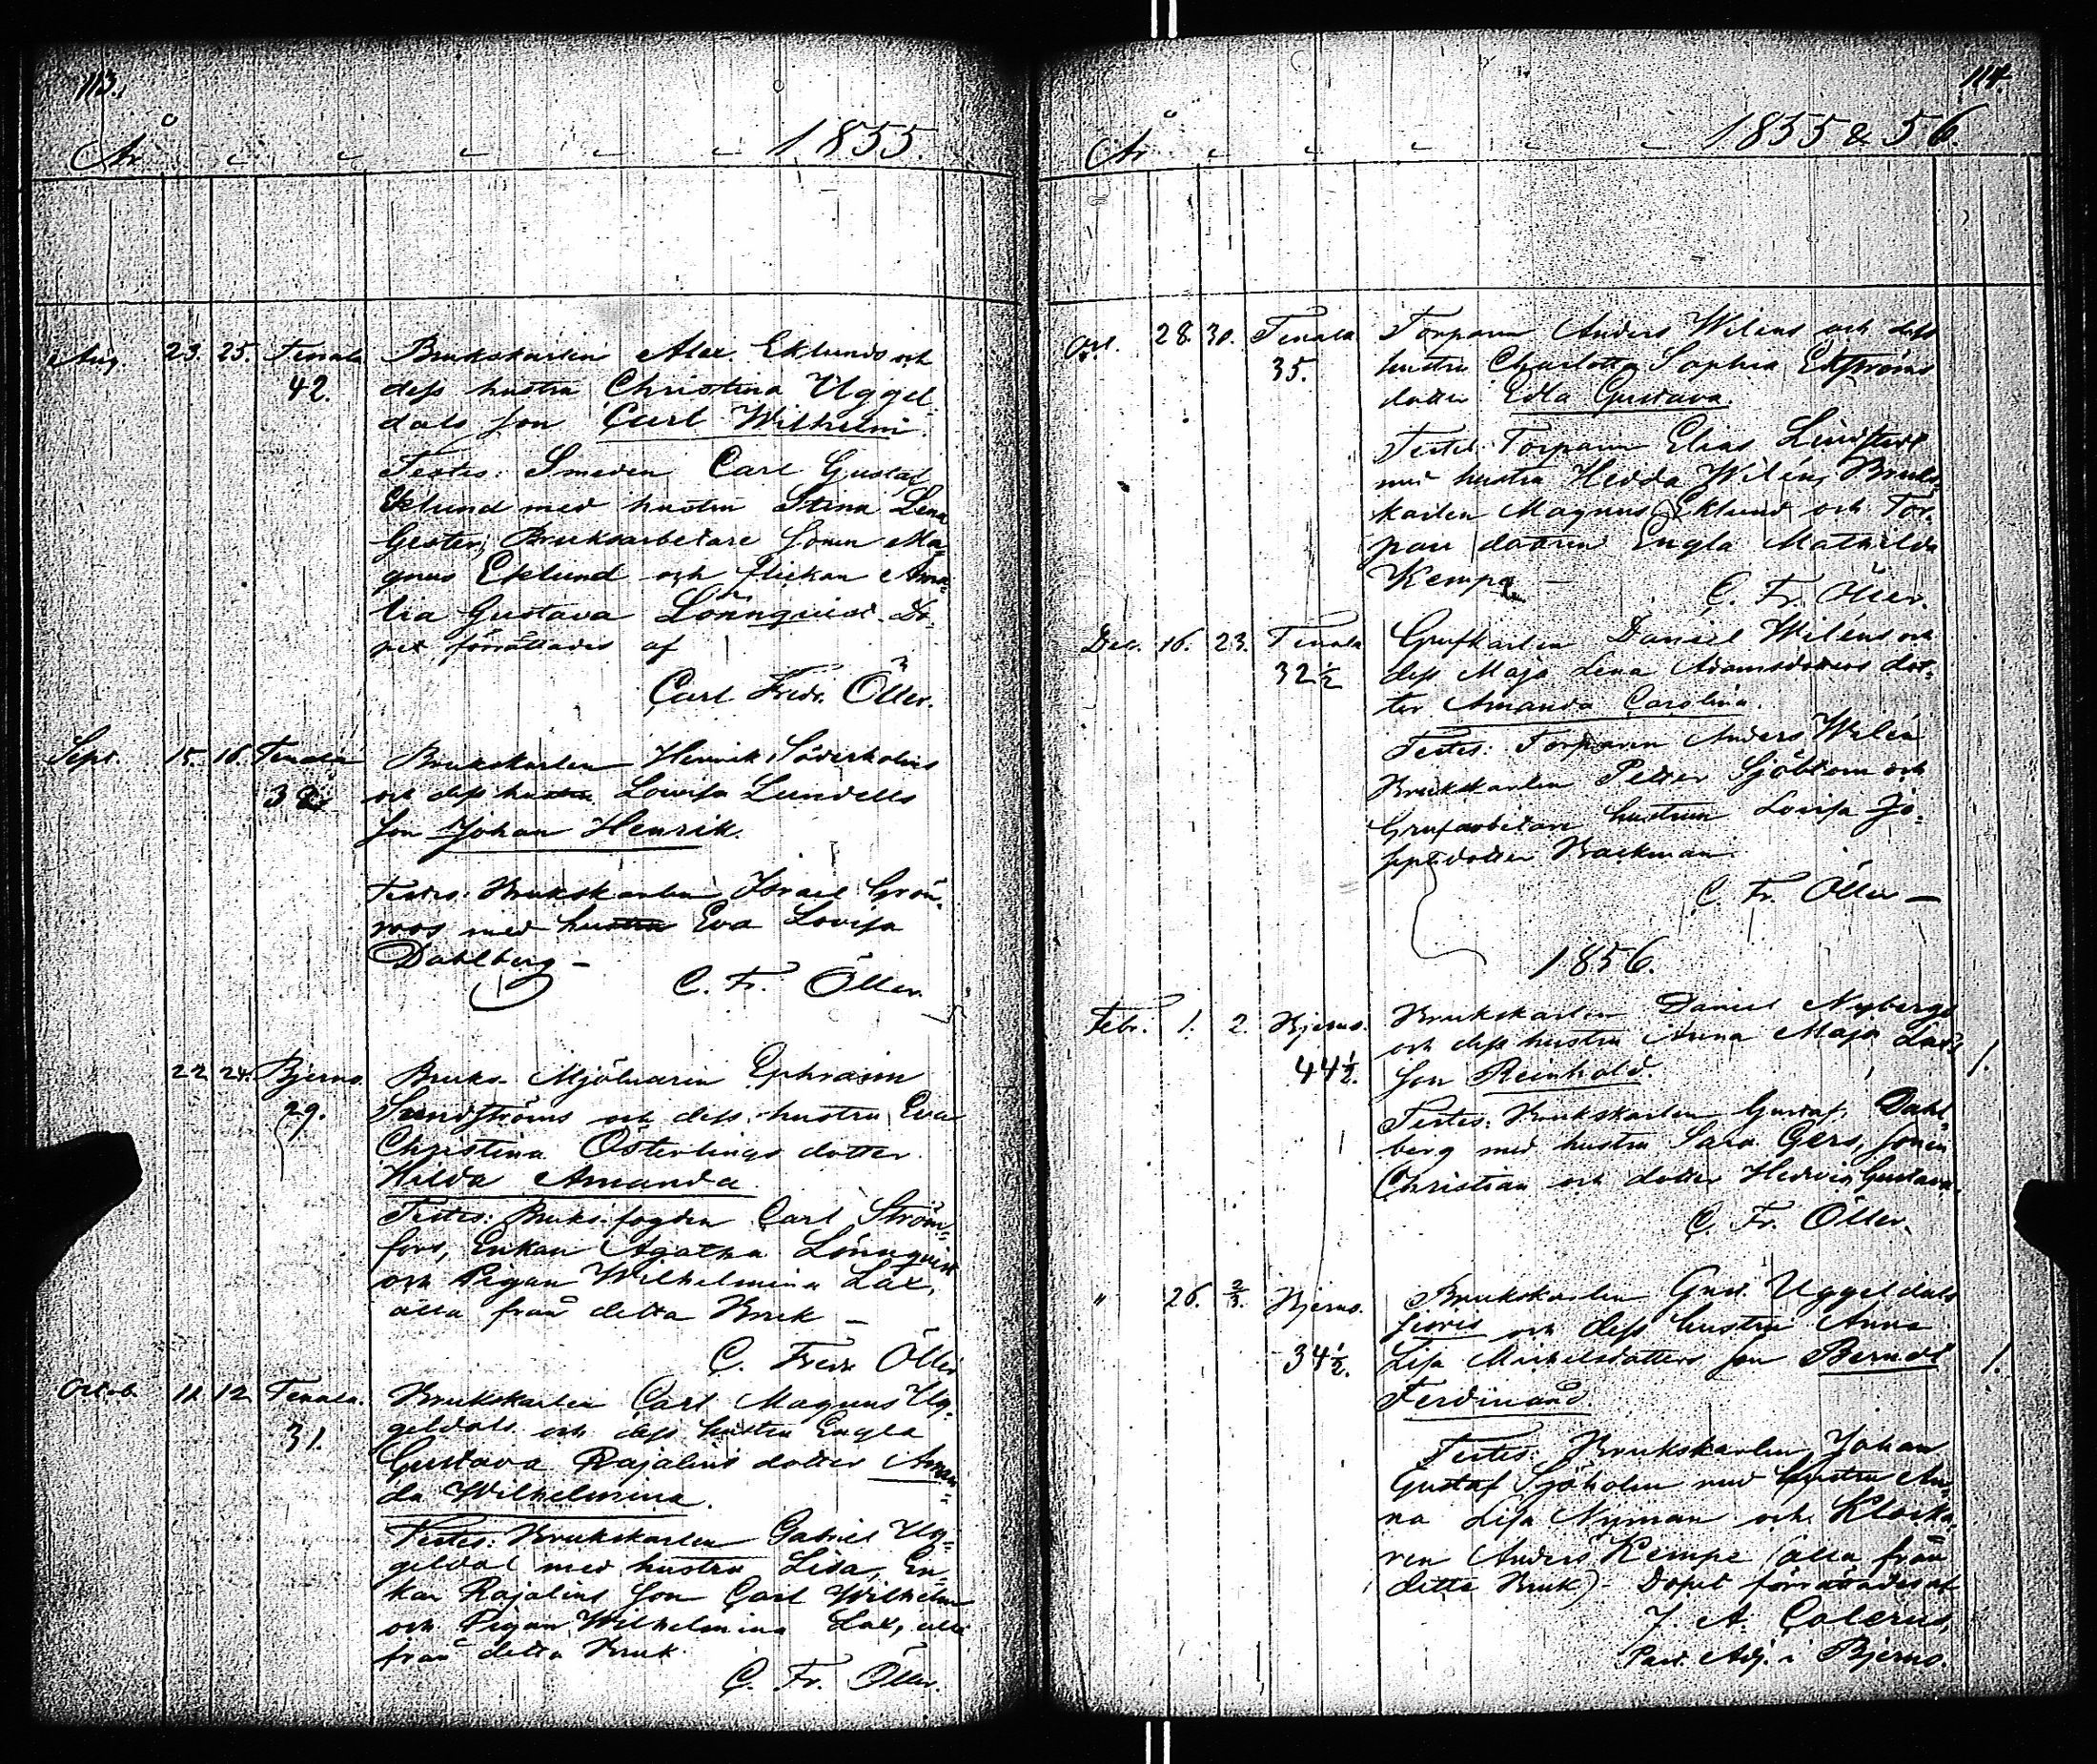 113.
År 1855.
Aug. 23. 25. Tenala Brukskarlen Alex. Eklunds och
42. dess hustru Christina Uggel-
dals son Carl Wilhelm.
Testes: Smeden Carl Gustaf
Eklund med hustru Stina Lena
Gester, Bruksarbetare sonen Ma-
gnus Eklund och flickan Ama-
lia Gustava Lönnqvist. Do-
pet förrättades af
Carl Fredr. Öller.
Sept. 15. 16. Tenala Brukskarlen Henrik Söderholms
och dess hustru Lovisa Lundells
son Johan Henrik.
Testes: Brukskarlen Israel Grön-
roos med hustru Eva Lovisa
Dahlberg –
C. Fr. Öller.
22 24. Bjerno. Bruks-Mjölnaren Ephraim
29. Sundströms och dess hustru Eva
Christina Österlings dotter
Hilda Amanda.
Testes: Bruks fogden Carl Ström-
fors, Enkan Agatha Lönnqvist
och Pigan Wilhelmina Lax,
alla från detta Bruk –
C. Fredr Öller
Octob. 11. 12. Tenala. Brukskarlen Carl Magnus Ug-
31. geldals och dess hustru Engla
Gustava Rajalins dotter Aman-
da Wilhelmina.
Testes: Brukskarlen Gabriel Ug-
geldal med hustru Lisa, En-
kan Rajalins son Carl Wilhelm
och Pigan Wilhelmina Lax, alla
från detta Bruk.
C. Fr. Öller.
114.
År 1855 & 56.
Oct. 28. 30. Tenala Torparn Anders Wilens och dess
35. hustru Charlotta Sophia Ekströms
dotter Edla Gustava.
Testes: Torparn Elias Lindstedt
med hustru Hedda Wilén, Bruks-
karlen Magnus Eklund och Tor-
pare dottren Engla Mathilda
Kempe –
C. Fr. Öller.
Dec. 16. 23. Tenala Grufkarlen Daniel Wiléns och
32½ dess Maja Lena Adamsdotters dot-
ter Amanda Carolina.
Testes: Torparen Anders Wilén
Brukskarlen Petter Sjöblom och
Grufarbetare hustrun Lovisa Jo-
sepsdotter Backman.
C. Fr. Öller –
1856.
Febr. 1. 2. Bjerno. Brukskarlen Daniel Nybergs
och dess hustru Anna Maja Lax's 1.
44½. son Reinhold.
Testes: Brukskarlen Gustaf Dahl-
berg med hustru Sara Gers, sonen
Christian och dotter Hedvig Gustava.
C. Fr. Öller.
" 26. 2/3. Bjerno. Brukskarlen Gust. Uggeldals
och dess hustru Anna
34½. Lisa Michelsdotters son Berndt 1.
Ferdinand.
Testes: Brukskarlen Johan
Gustaf Sjöholm med hustru An-
na Lisa Nyman och Klocka-
ren Anders Kempe (alla från
detta Bruk) - Dopet förrättades af
J. A. Calerus,
Past. Adj. i Bjerno.